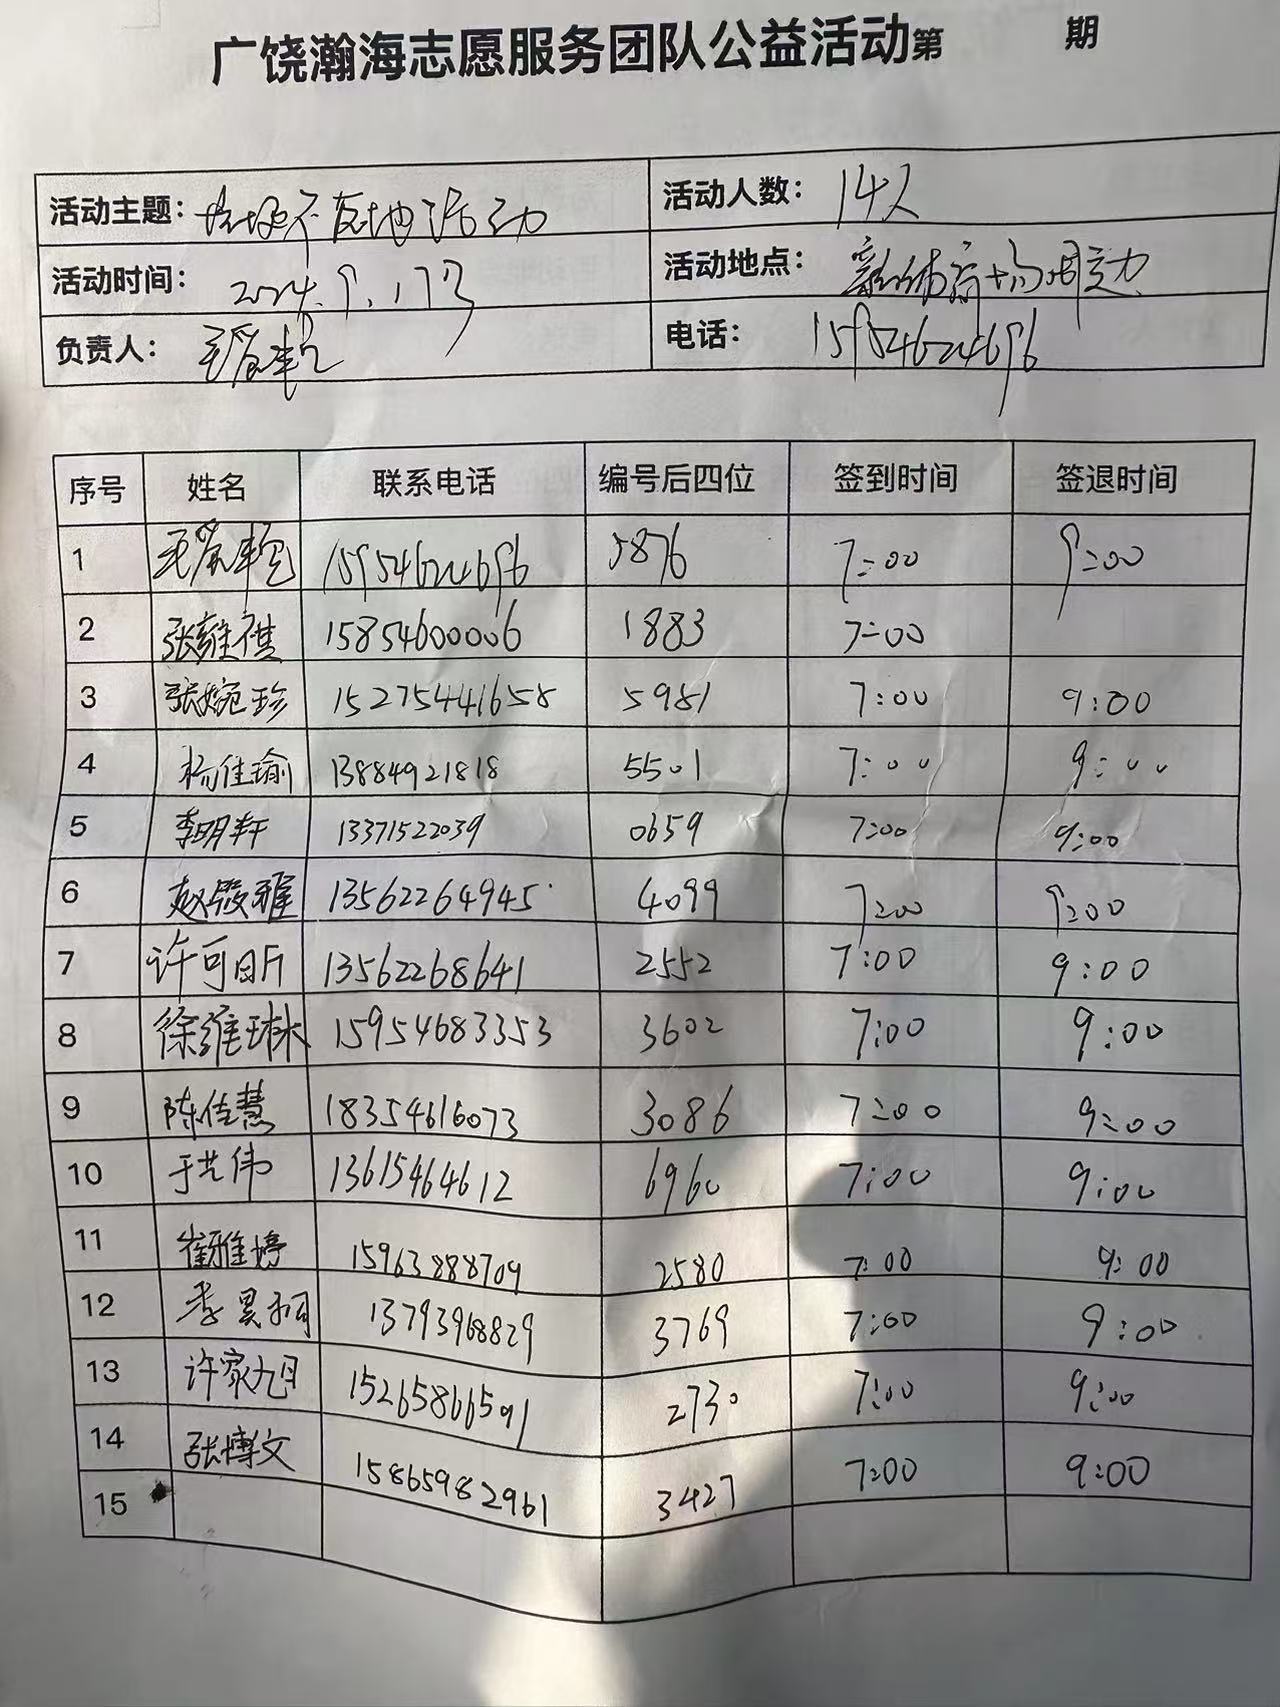 广饶瀚海志愿服务团队公益活动第 期
活动主题：垃圾不落地活动 活动人数：14人
活动时间：2024.9.17号 活动地点：新体育场周边
负责人： 电话：15954624696
序号 姓名 联系电话 编号后四位 签到时间 签退时间
1 15954624696 5876 7:00 9:00
2 张雍祺 15854600006 1883 7:00
3 张婉珍 15275441658 5981 7:00 9:00
4 杨佳瑜 13884921818 5501 7:00 9:00
5 李明轩 13371522039 0659 7:00 9:00
6 赵骏雅 13562264945 4099 7:00 9:00
7 许可昕 13562268641 2552 7:00 9:00
8 徐维琳 15954683353 3602 7:00 9:00
9 陈佳慧 18354616073 3086 7:00 9:00
10 于艺伟 13615464612 6960 7:00 9:00
11 崔雅婷 15963888709 2580 7:00 9:00
12 李昊桐 13793968829 3769 7:00 9:00
13 许家旭 15265866591 2730 7:00 9:00
14 张博文 15865982961 3427 7:00 9:00
15